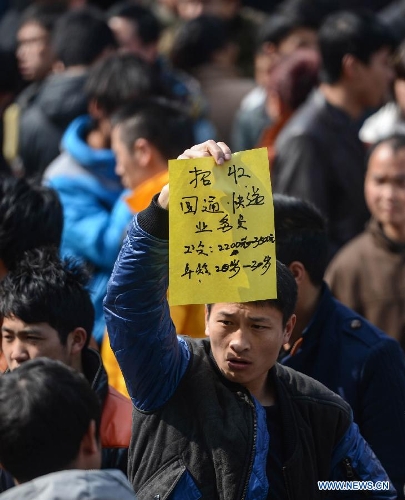 招收
圆通快递
业务员
工资:2200元-3500元
年龄:20岁-30岁
NEWS.CN